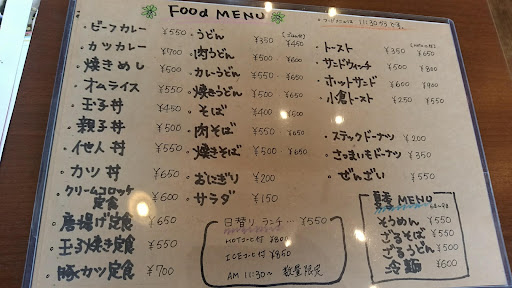 FOOD MENU
・フードメニューは 11:30から です。
・ビーフカレー ¥550
・カツカレー ¥700
・焼きめし ¥500
・オムライス ¥550
・玉子丼 ¥450
・親子丼 ¥500
・他人丼 ¥550
・カツ丼 ¥650
・クリームコロッケ定食 ¥600
・唐揚げ定食 ¥650
・玉子焼き定食 ¥550
・豚カツ定食 ¥700
・うどん ¥350 ¥450
・肉うどん ¥500 ¥600
・カレーうどん ¥550 ¥650
・焼きうどん ¥500 ¥650
・そば ¥400 ¥500
・肉そば ¥500 ¥650
・焼きそば ¥500 ¥650
・おにぎり ¥200
・サラダ ¥150
日替りランチ… ¥550
HOTコーヒー付 ¥800
ICEコーヒー付 ¥850
AM 11:30~ 数量限定
・トースト ¥350 ¥650
・サンドウィッチ ¥500 ¥800
・ホットサンド ¥600 ¥900
・小倉トースト ¥250 ¥550
・スティックドーナツ ¥200
・さつまいもドーナツ ¥350
・ぜんざい ¥550
夏季 MENU
そうめん ¥550
ざるそば ¥550
ざるうどん ¥500
冷麺 ¥600